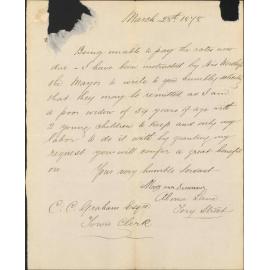 March 28th 1878
Being unable to pay the rates now
due - I have been instructed by his Worship
the Mayor to write to you humbly
that they may be remitted as I am
a poor widow of 54 years of age with
2 young children to keep and only my
labor to do it with by granting my
request you will confer a great benefit
on
Your very humble Servant
Lane
Tory Street
C. C. Graham Esqre
Town Clerk